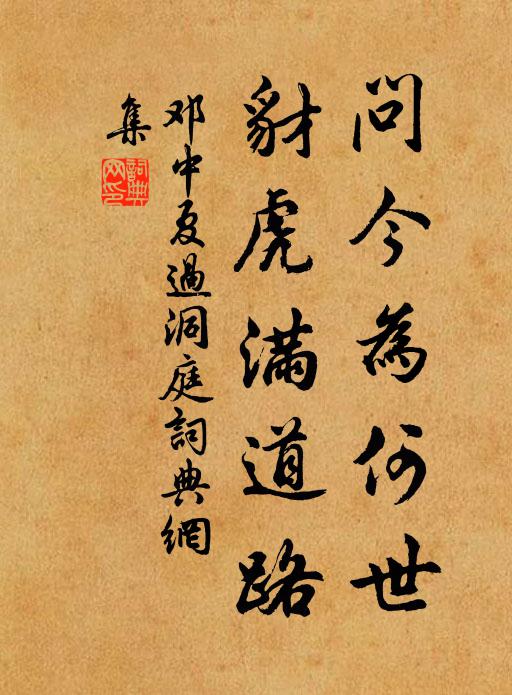 問今為何世
豺虎滿道路
邓中夏過洞庭詞典網
集
詞典
网印